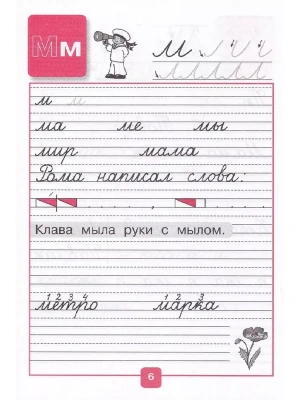 Мм М
м м
ма ме мы
мир мама
Рома написал слова:
, .
Клава мыла руки с мылом.
1 2 3 4 1 2 3
метро марка
6